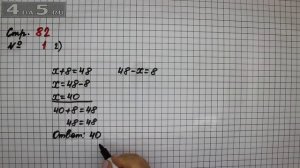 4 НА 5.RU
Стр. 82
№ 1 2)
x+8=48 48-x=8
x=48-8
x=40
40+8=48
48=48
Ответ: 40